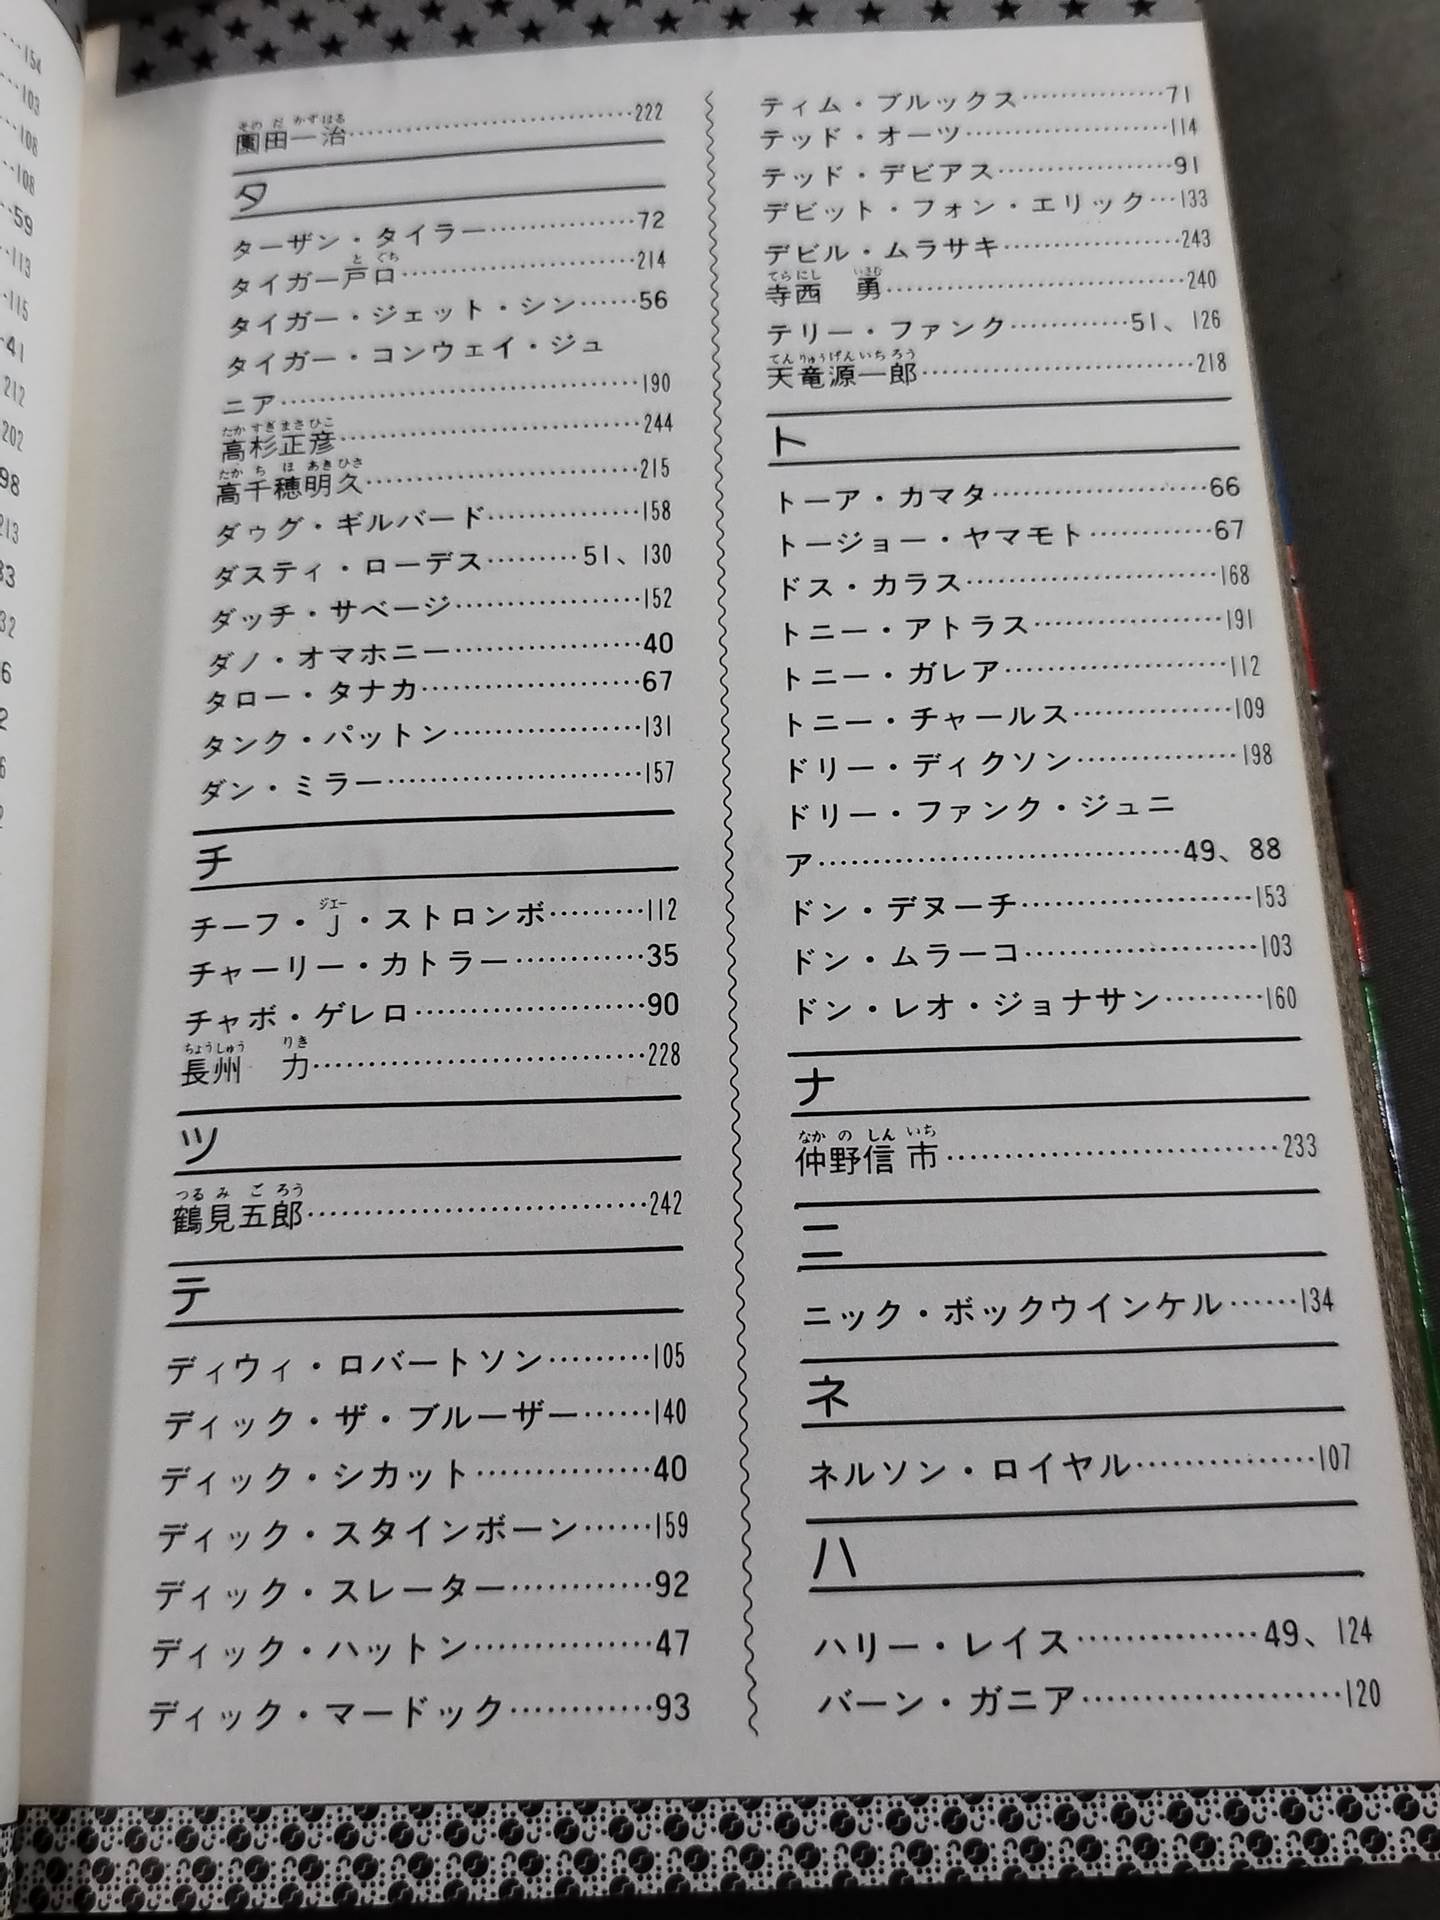 園田一治……222
タ
ターザン・タイラー……72
タイガー戸口……214
タイガー・ジェット・シン……56
タイガー・コンウェイ・ジュ
ニア……190
高杉正彦……244
高千穂明久……215
ダゥグ・ギルバード……158
ダスティ・ローデス……51、130
ダッチ・サベージ……152
ダノ・オマホニー……40
タロー・タナカ……67
タンク・パットン……131
ダン・ミラー……157
チ
チーフ・J・ストロンボ……112
チャーリー・カトラー……35
チャボ・ゲレロ……90
長州 力……228
ツ
鶴見五郎……242
テ
ディウィ・ロバートソン……105
ディック・ザ・ブルーザー……140
ディック・シカット……40
ディック・スタインボーン……159
ディック・スレーター……92
ディック・ハットン……47
ディック・マードック……93
ティム・ブルックス……71
テッド・オーツ……114
テッド・デビアス……91
デビット・フォン・エリック…133
デビル・ムラサキ……243
寺西 勇……240
テリー・ファンク……51、126
天竜源一郎……218
ト
トーア・カマタ……66
トージョー・ヤマモト……67
ドス・カラス……168
トニー・アトラス……191
トニー・ガレア……112
トニー・チャールス……109
ドリー・ディクソン……198
ドリー・ファンク・ジュニ
ア……49、88
ドン・デヌーチ……153
ドン・ムラーコ……103
ドン・レオ・ジョナサン……160
ナ
仲野信市……233
ニ
ニック・ボックウインケル……134
ネ
ネルソン・ロイヤル……107
ハ
ハリー・レイス……49、124
バーン・ガニア……120